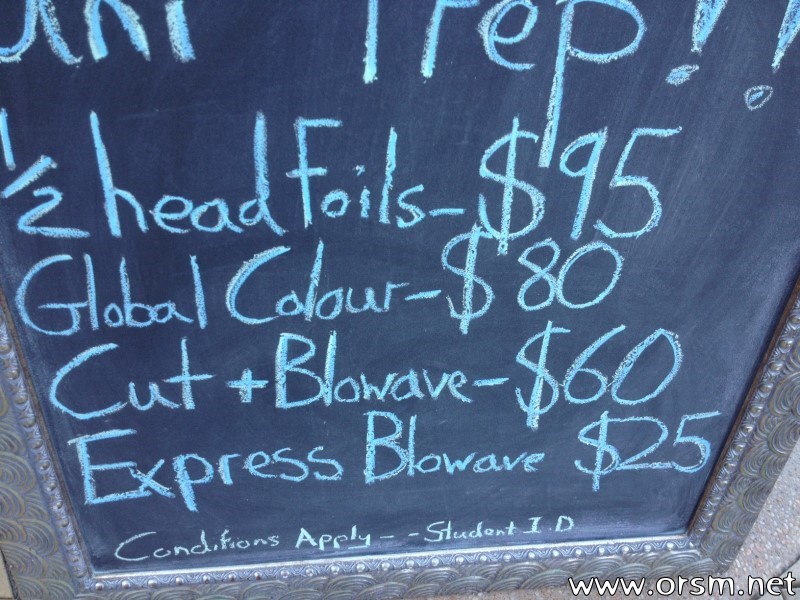 Uni Prep!!
1/2 head Foils - $95
Global Colour - $80
Cut + Blowave - $60
Express Blowave $25
Conditions Apply - - Student I.D
www.orsm.net